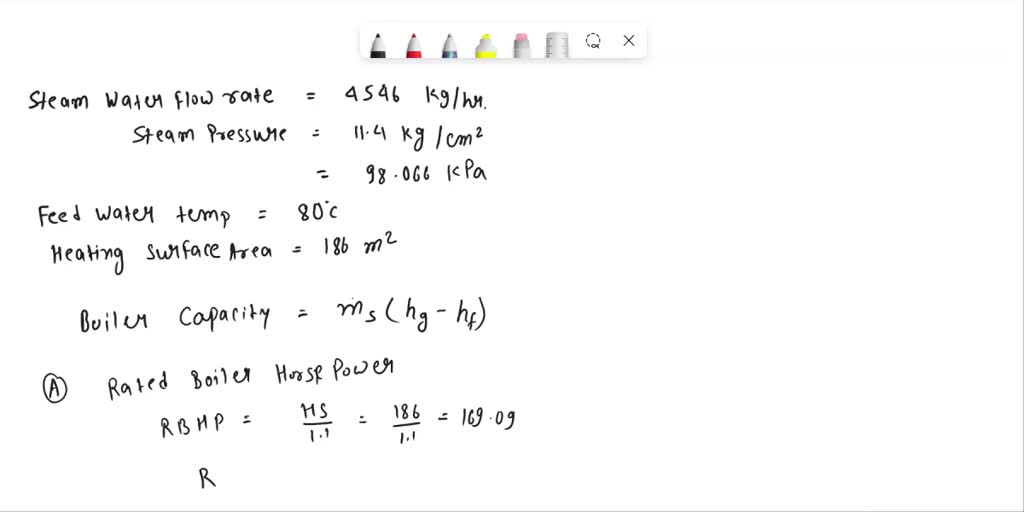 Steam Water flow rate = 4546 kg/hr.
Steam Pressure = 11.4 kg/cm²
= 98.066 KPa
Feed Water temp = 80°c
Heating Surface Area = 186 m²
Boiler Capacity = ṁs (hg - hf)
(A) Rated Boiler Horse Power
RBHP = HS/1.1 = 186/1.1 = 169.09
R